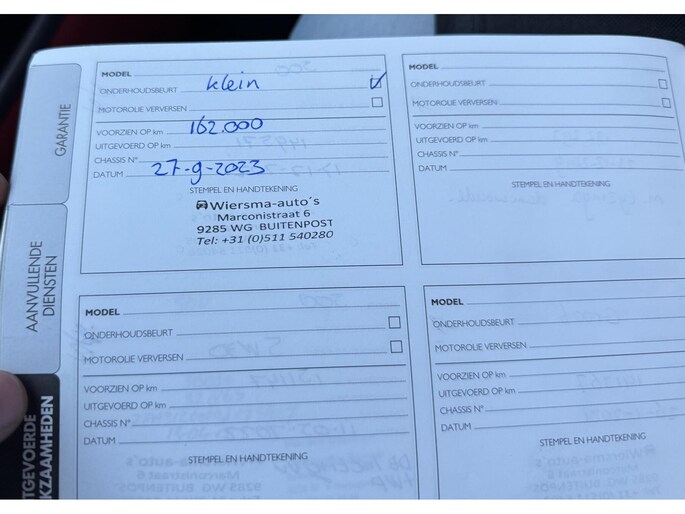 GARANTIE
AANVULLENDE
DIENSTEN
UITGEVOERDE
WERKZAAMHEDEN
MODEL
ONDERHOUDSBEURT klein
MOTOROLIE VERVERSEN
VOORZIEN OP km 162.000
UITGEVOERD OP km
CHASSIS N°
DATUM 27-9-2023
STEMPEL EN HANDTEKENING
Wiersma-auto´s
Marconistraat 6
9285 WG BUITENPOST
Tel: +31 (0)511 540280
MODEL
ONDERHOUDSBEURT
MOTOROLIE VERVERSEN
VOORZIEN OP km
UITGEVOERD OP km
CHASSIS N°
DATUM
STEMPEL EN HANDTEKENING
MODEL
ONDERHOUDSBEURT
MOTOROLIE VERVERSEN
VOORZIEN OP km
UITGEVOERD OP km
CHASSIS N°
DATUM
STEMPEL EN HANDTEKENING
MODEL
ONDERHOUDSBEURT
MOTOROLIE VERVERSEN
VOORZIEN OP km
UITGEVOERD OP km
CHASSIS N°
DATUM
STEMPEL EN HANDTEKENING